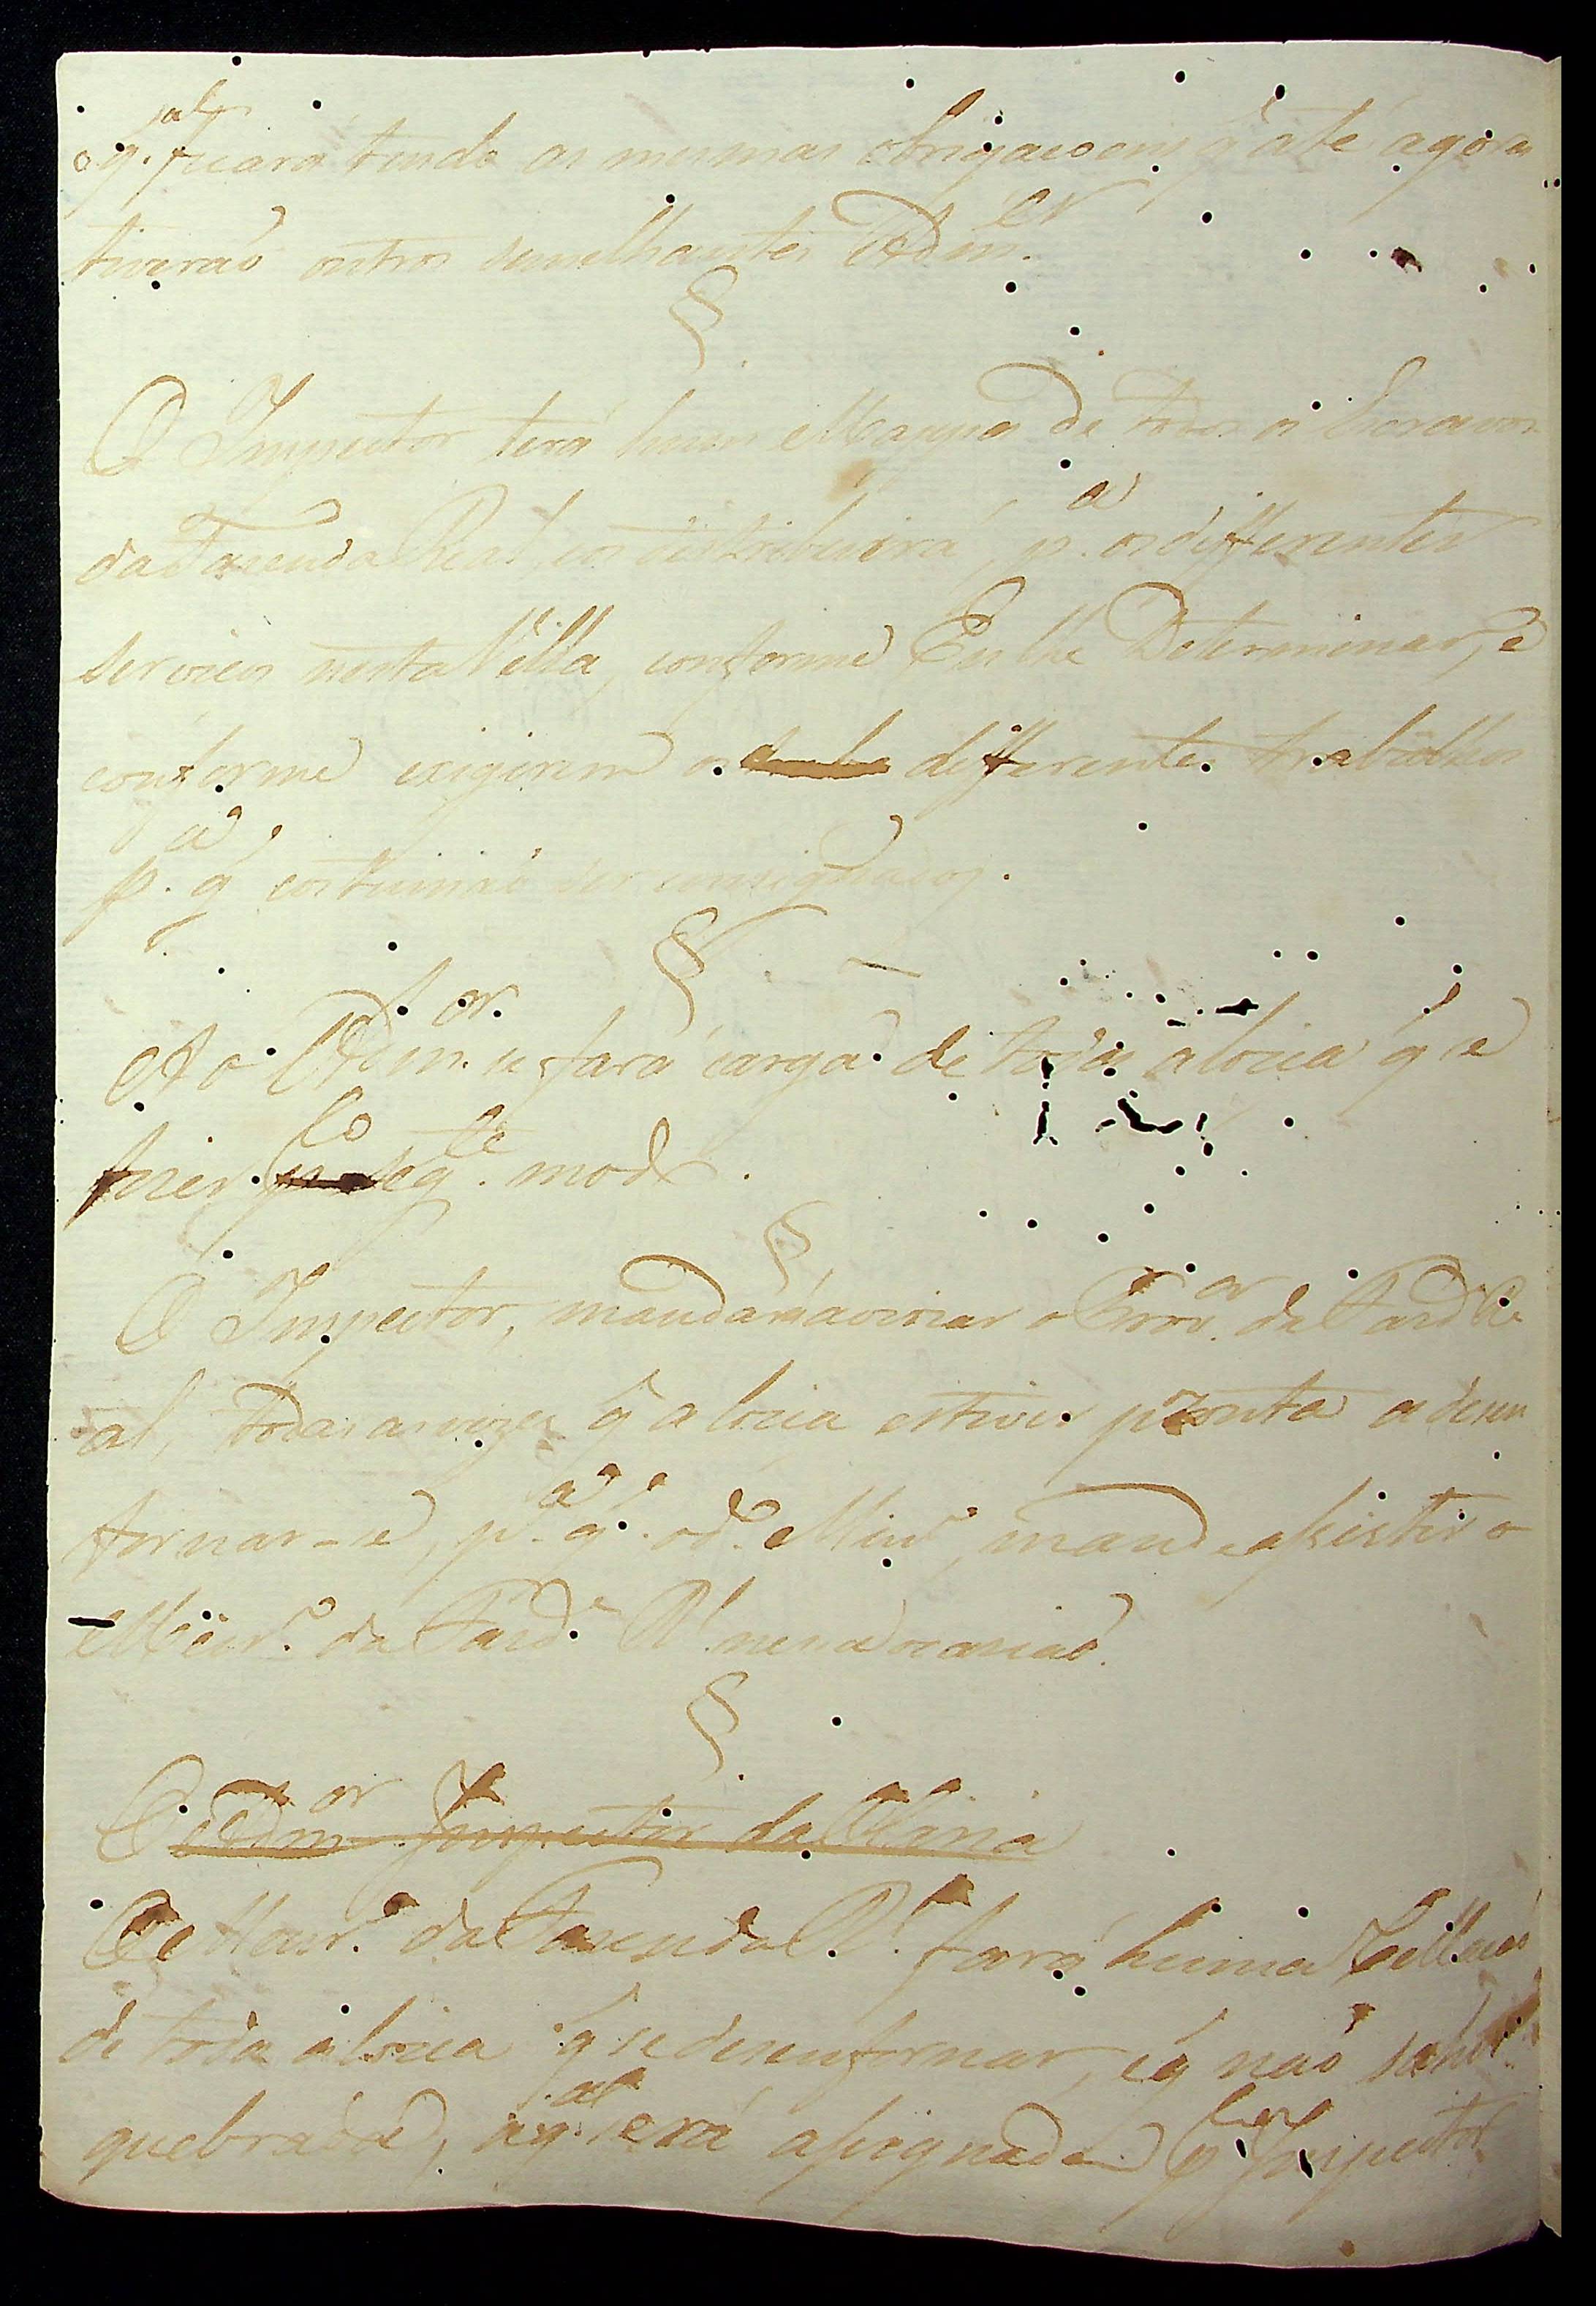 o q.al ficará tendo as mesmas obrigaçoens q̃ até agora
tiveraõ outros semelhantes Adm.es
§
O Inspector terá hum Mappa de todos os Escravos
da Fazenda Real, e os distribuirá, p.a os differentes
serviços nesta Villa, conforme Eu lhe Determinar, e
conforme exigirem os differentes trabalhos
p.a q̃ costumaõ ser consignados.
§
Ao Adm.or se fará carga de toda a loiça q̃ se
fizer p.lo seg.te modo.
§
O Inspector, mandará avizar o Prov.or da Fazd.a Re
al, todas as vezes q̃ a loiça estiver pronta a desen
fornar-se, p.a q̃ o d.o Min.o, mande assistir o
Meir.o da Fazd.a R.l nessa ocaziaõ.
§
O Adm.or Inspector da Olaria
O Meir.o da Fazenda R.l fará huma Rellaçaõ
de toda a loiça q̃ se desenfornar, e q̃ naõ sahir
quebrada, a q.al será assignada p.lo Inspector